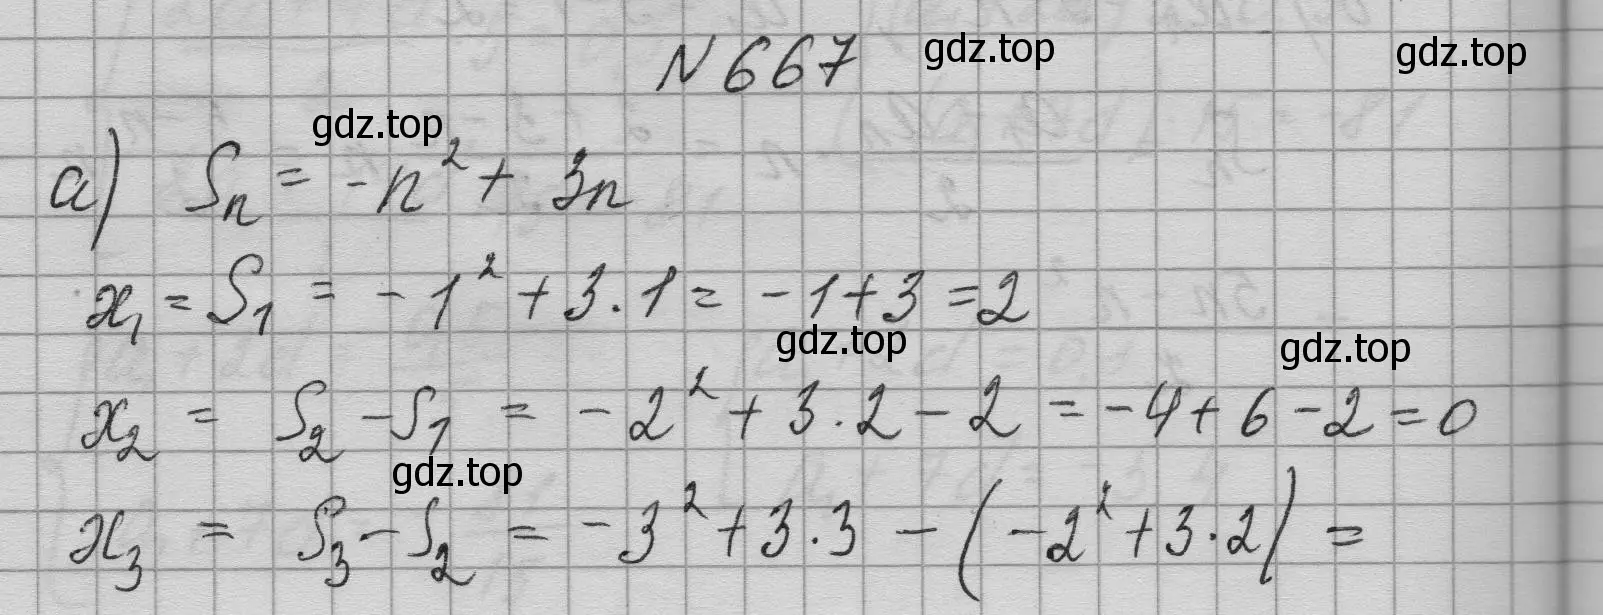 N 667 gdz.top gdz.top
gdz.top
а) Sₙ = -n² + 3n
x₁ = S₁ = -1² + 3·1 = -1+3 = 2
gdz.top gdz.top
x₂ = S₂ - S₁ = -2² + 3·2 - 2 = -4+6-2=0
gdz.top
x₃ = S₃ - S₂ = -3² + 3·3 - (-2² + 3·2) =